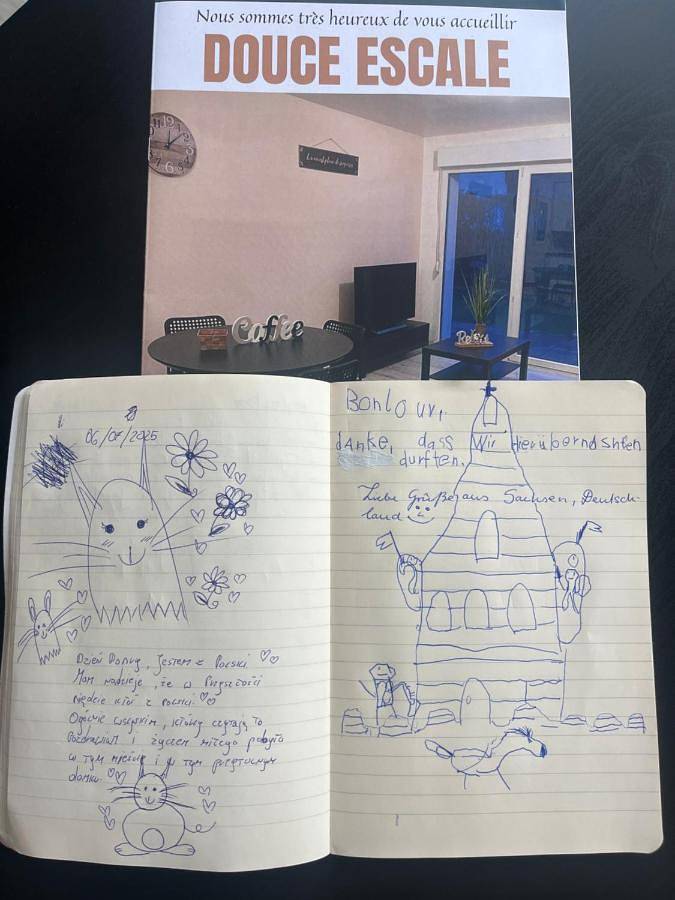 Nous sommes très heureux de vous accueillir
DOUCE ESCALE
Coffee
Relax
06/07/2025
Dzień Dobry, Jestem z Polski.
Mam nadzieję, że w Przyszłości
będzie ktoś z Polski.
Ogólnie wszystkim, którzy czytają to
Pozdrawiam i życzę miłego pobytu
w tym mieście i w tym
domku.
Bonlour,
danke, dass Wir hier übernachten
durften.
Liebe Grüße aus Sachsen, Deutsch-
land